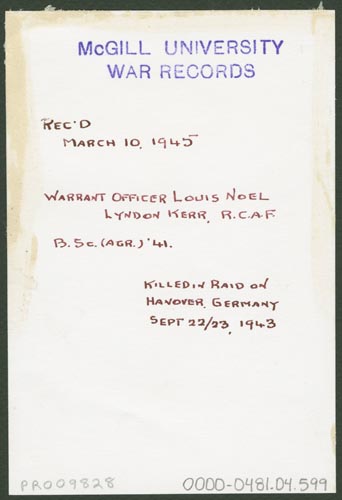 McGILL UNIVERSITY
WAR RECORDS
REC'D
MARCH 10, 1945
WARRANT OFFICER LOUIS NOEL
LYNDON KERR, R.C.A.F.
B.Sc. (AGR.) '41.
KILLED IN RAID ON
HANOVER, GERMANY
SEPT 22/23, 1943
PR009828
0000-0481.04.599